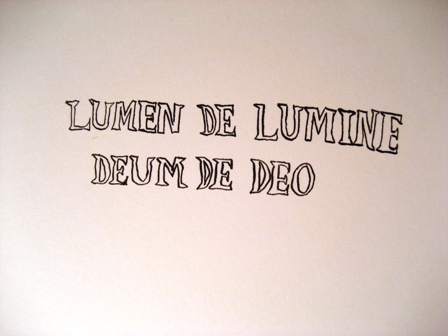 LUMEN DE LUMINE
DEUM DE DEO